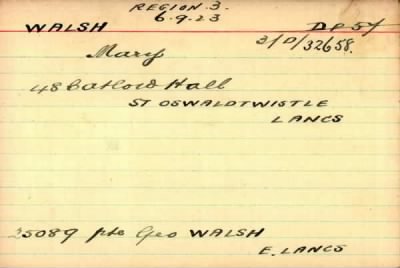 REGION. 3.
6.9.23
WALSH DP 57
3/D/32658.
Mary
48 Catlow Hall
ST OSWALDTWISTLE
LANCS
25089 pte Geo WALSH
E. LANCS